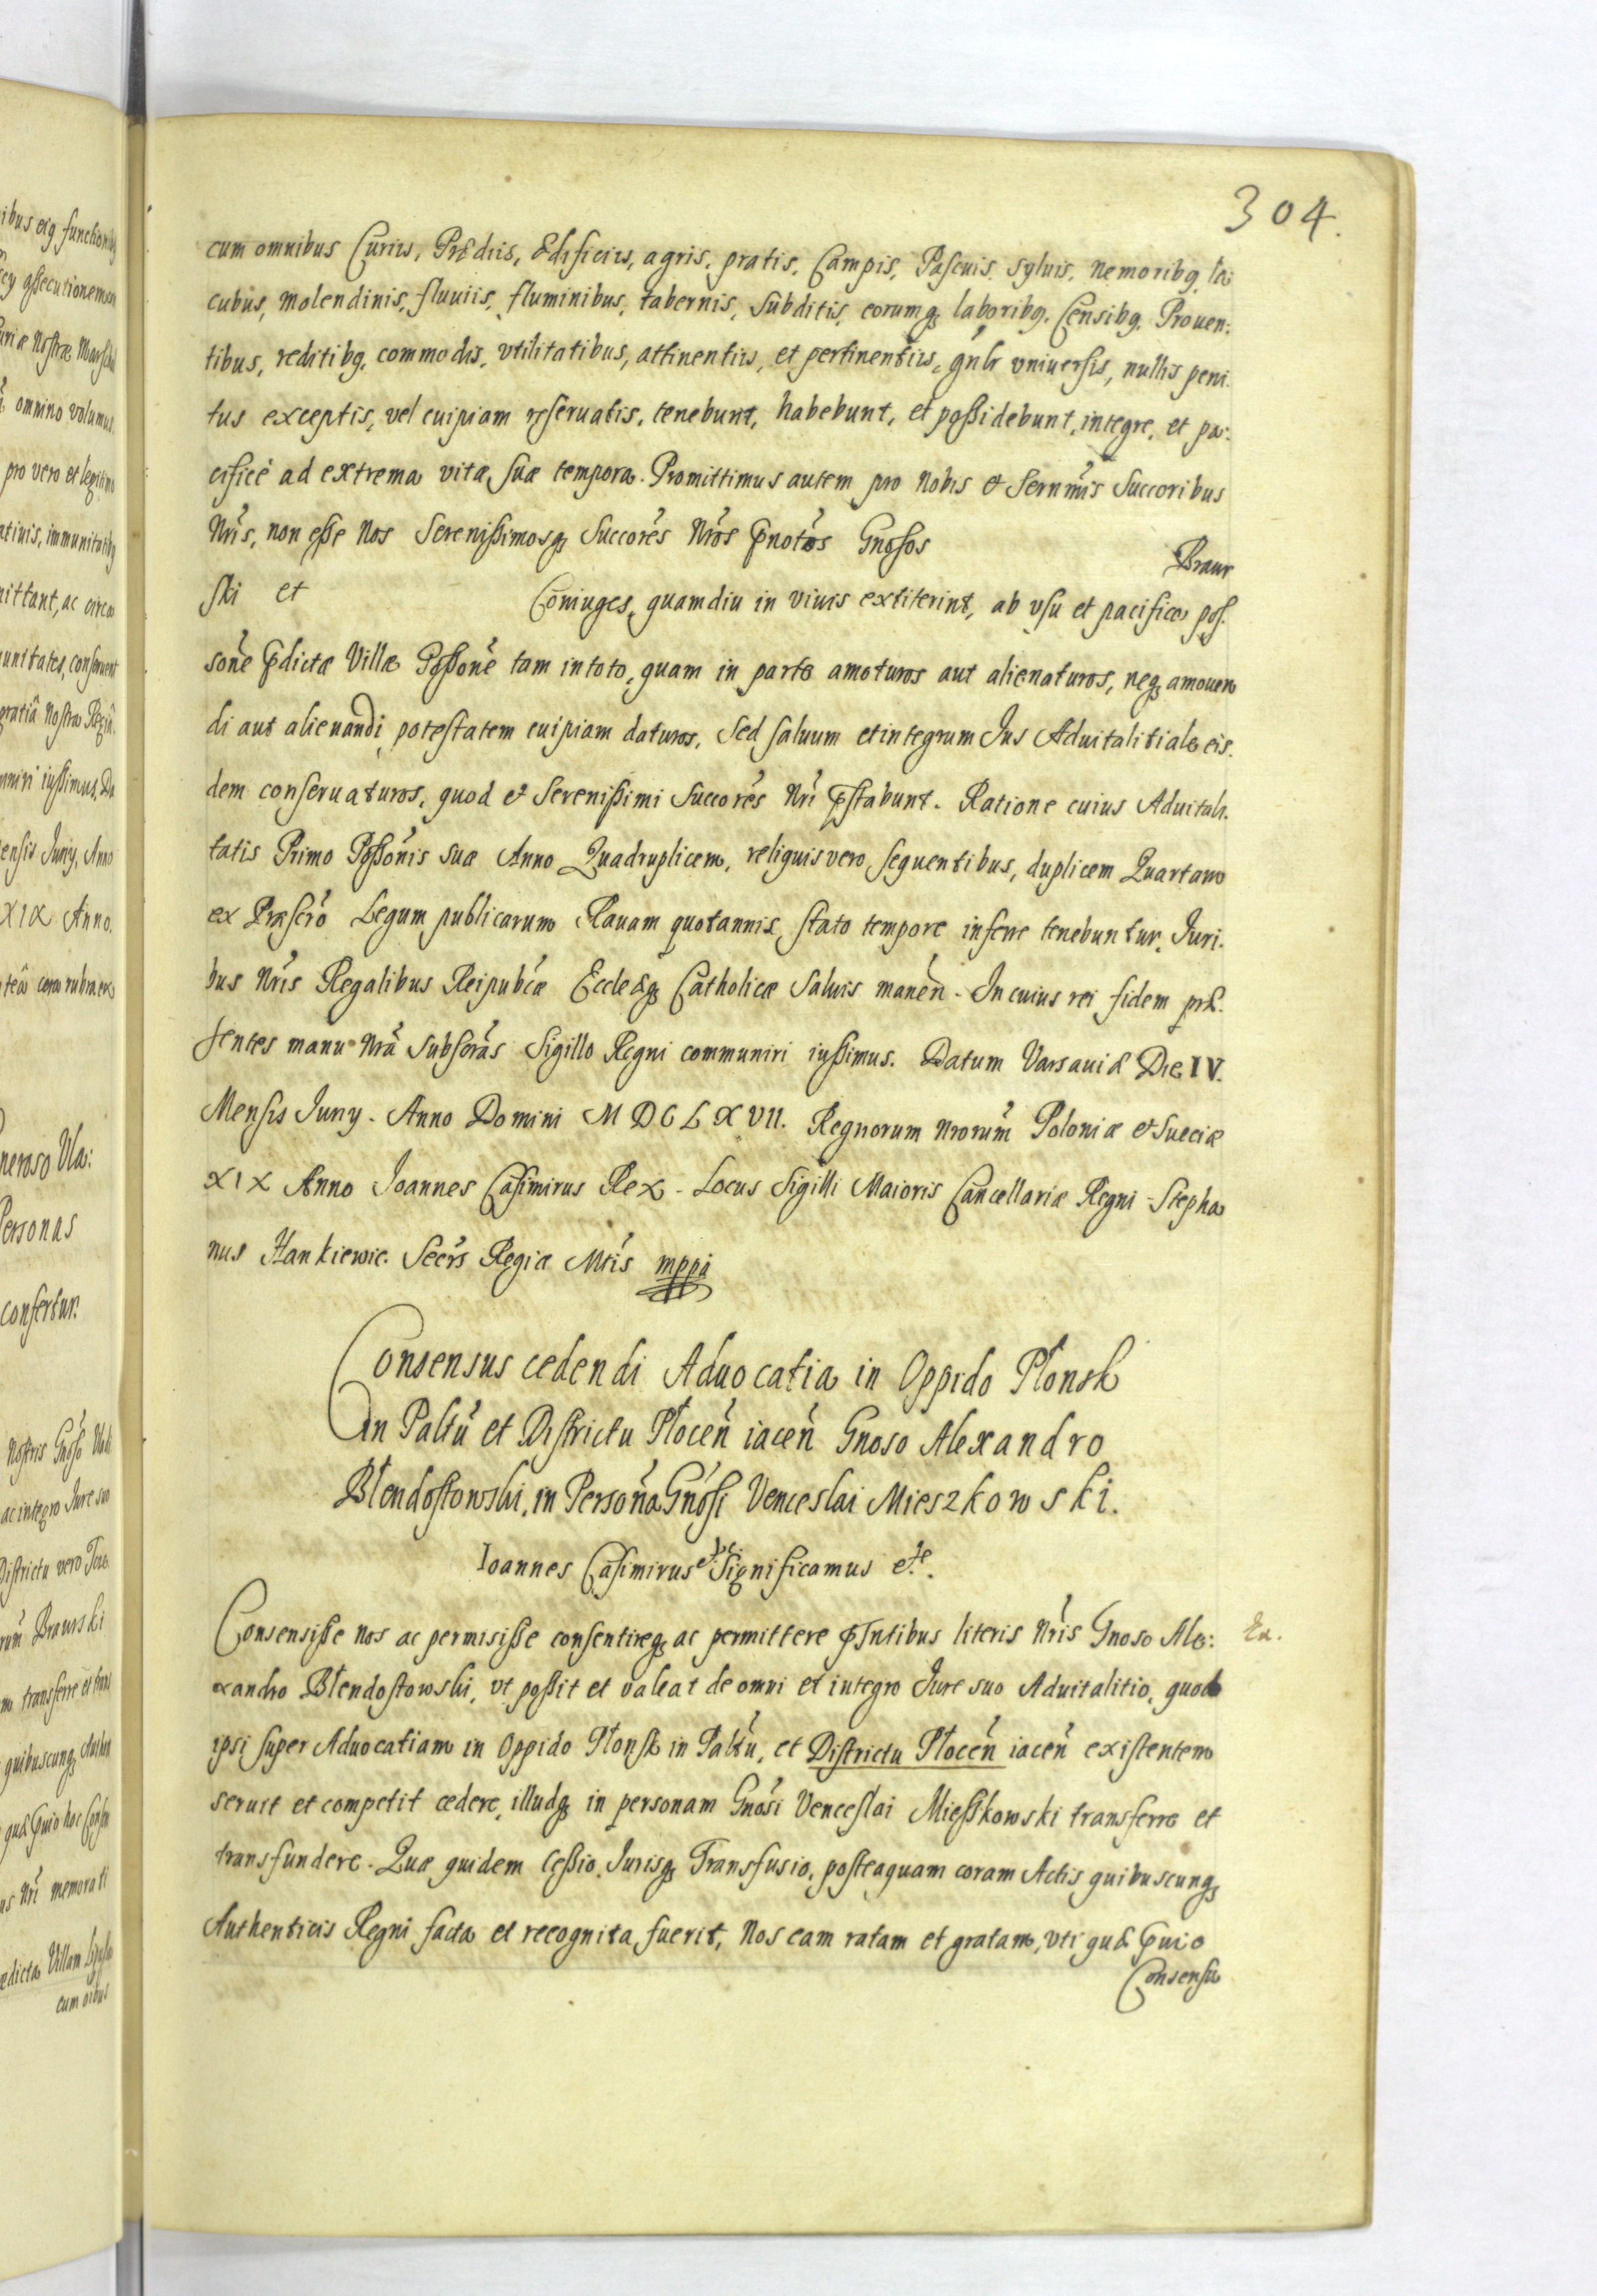 304.
cum omnibus Curiis, Prædiis, Ædificiis, agris, pratis, Campis, Pascuis, syluis, nemoribq, la
cubus, molendinis, fluuiis, fluminibus, tabernis, subditis, eorumq laboribq, Censibq, Prouen:
tibus, reditibq, commodis, vtilitatibus, attinentiis, et pertinentiis, gnlr vniuersis, nullis peni
tus exceptis, vel cuipiam reseruatis, tenebunt, habebunt, et possidebunt, integre, et pa:
cificè ad extrema vitæ suæ tempora. Promittimus autem pro Nobis et Sernmis Succoribus
Nris, non esse Nos Serenissimosq Succores Nros pnotos Gnosos Braur
ski et Coniuges, quamdiu in viuis extiterint, ab vsu et pacifica pos.
sone pdictæ Villæ Possone tam in toto, quam in parte amoturos aut alienaturos, neq amouen
di aut alienandi potestatem cuipiam daturos, sed saluum et integrum Ius Aduitalitiale eis.
dem conseruaturos, quod et Serenissimi Succores Nri pstabunt. Ratione cuius Aduitali.
tatis Primo Possonis suæ Anno Quadruplicem, reliquis vero sequentibus, duplicem Quartam
ex Præscro Legum publicarum Rauam quotannis, stato tempore inferre tenebuntur, Iuri.
bus Nris Regalibus Reipubcæ Ecclæq Catholicæ Saluis manen. In cuius rei fidem præ.
sentes manu Nra subscras Sigillo Regni communiri iussimus. Datum Varsauiæ Die IV.
Mensis Iuny. Anno Domini MDCLXVII. Regnorum Nrorum Poloniæ et Sueciæ
XIX Anno Ioannes Casimirus Rex - Locus Sigilli Maioris Cancellariæ Regni - Stepha
nus Hankiewic. Secrs Regiæ Mtis mppa
Consensus cedendi Aduocatia in Oppido Płonsk
In Paltu et Districtu Płocen iacen Gnoso Alexandro
Błendostowski, in Persona Gnosi Venceslai Mieszkowski.
Ioannes Casimirus etc Significamus etc.
Consensisse nos ac permisisse consentireq ac permittere pntibus literis Nris Gnoso Ale:
xandro Błendostowski, vt possit et valeat de omni et integro Iure suo Aduitalitio, quod
ipsi super Aduocatiam in Oppido Płonsk in Paltu, et Districtu Płocen iacen existentem
seruit et competit cedere, illudq in personam Gnosi Venceslai Miesskowski transferre et
transfundere. Quæ quidem Cessio, Iurisq Transfusio, posteaquam coram Actis quibuscunq
Authenticis Regni facta et recognita fuerit, Nos eam ratam et gratam, vti quæ puio
Consensu